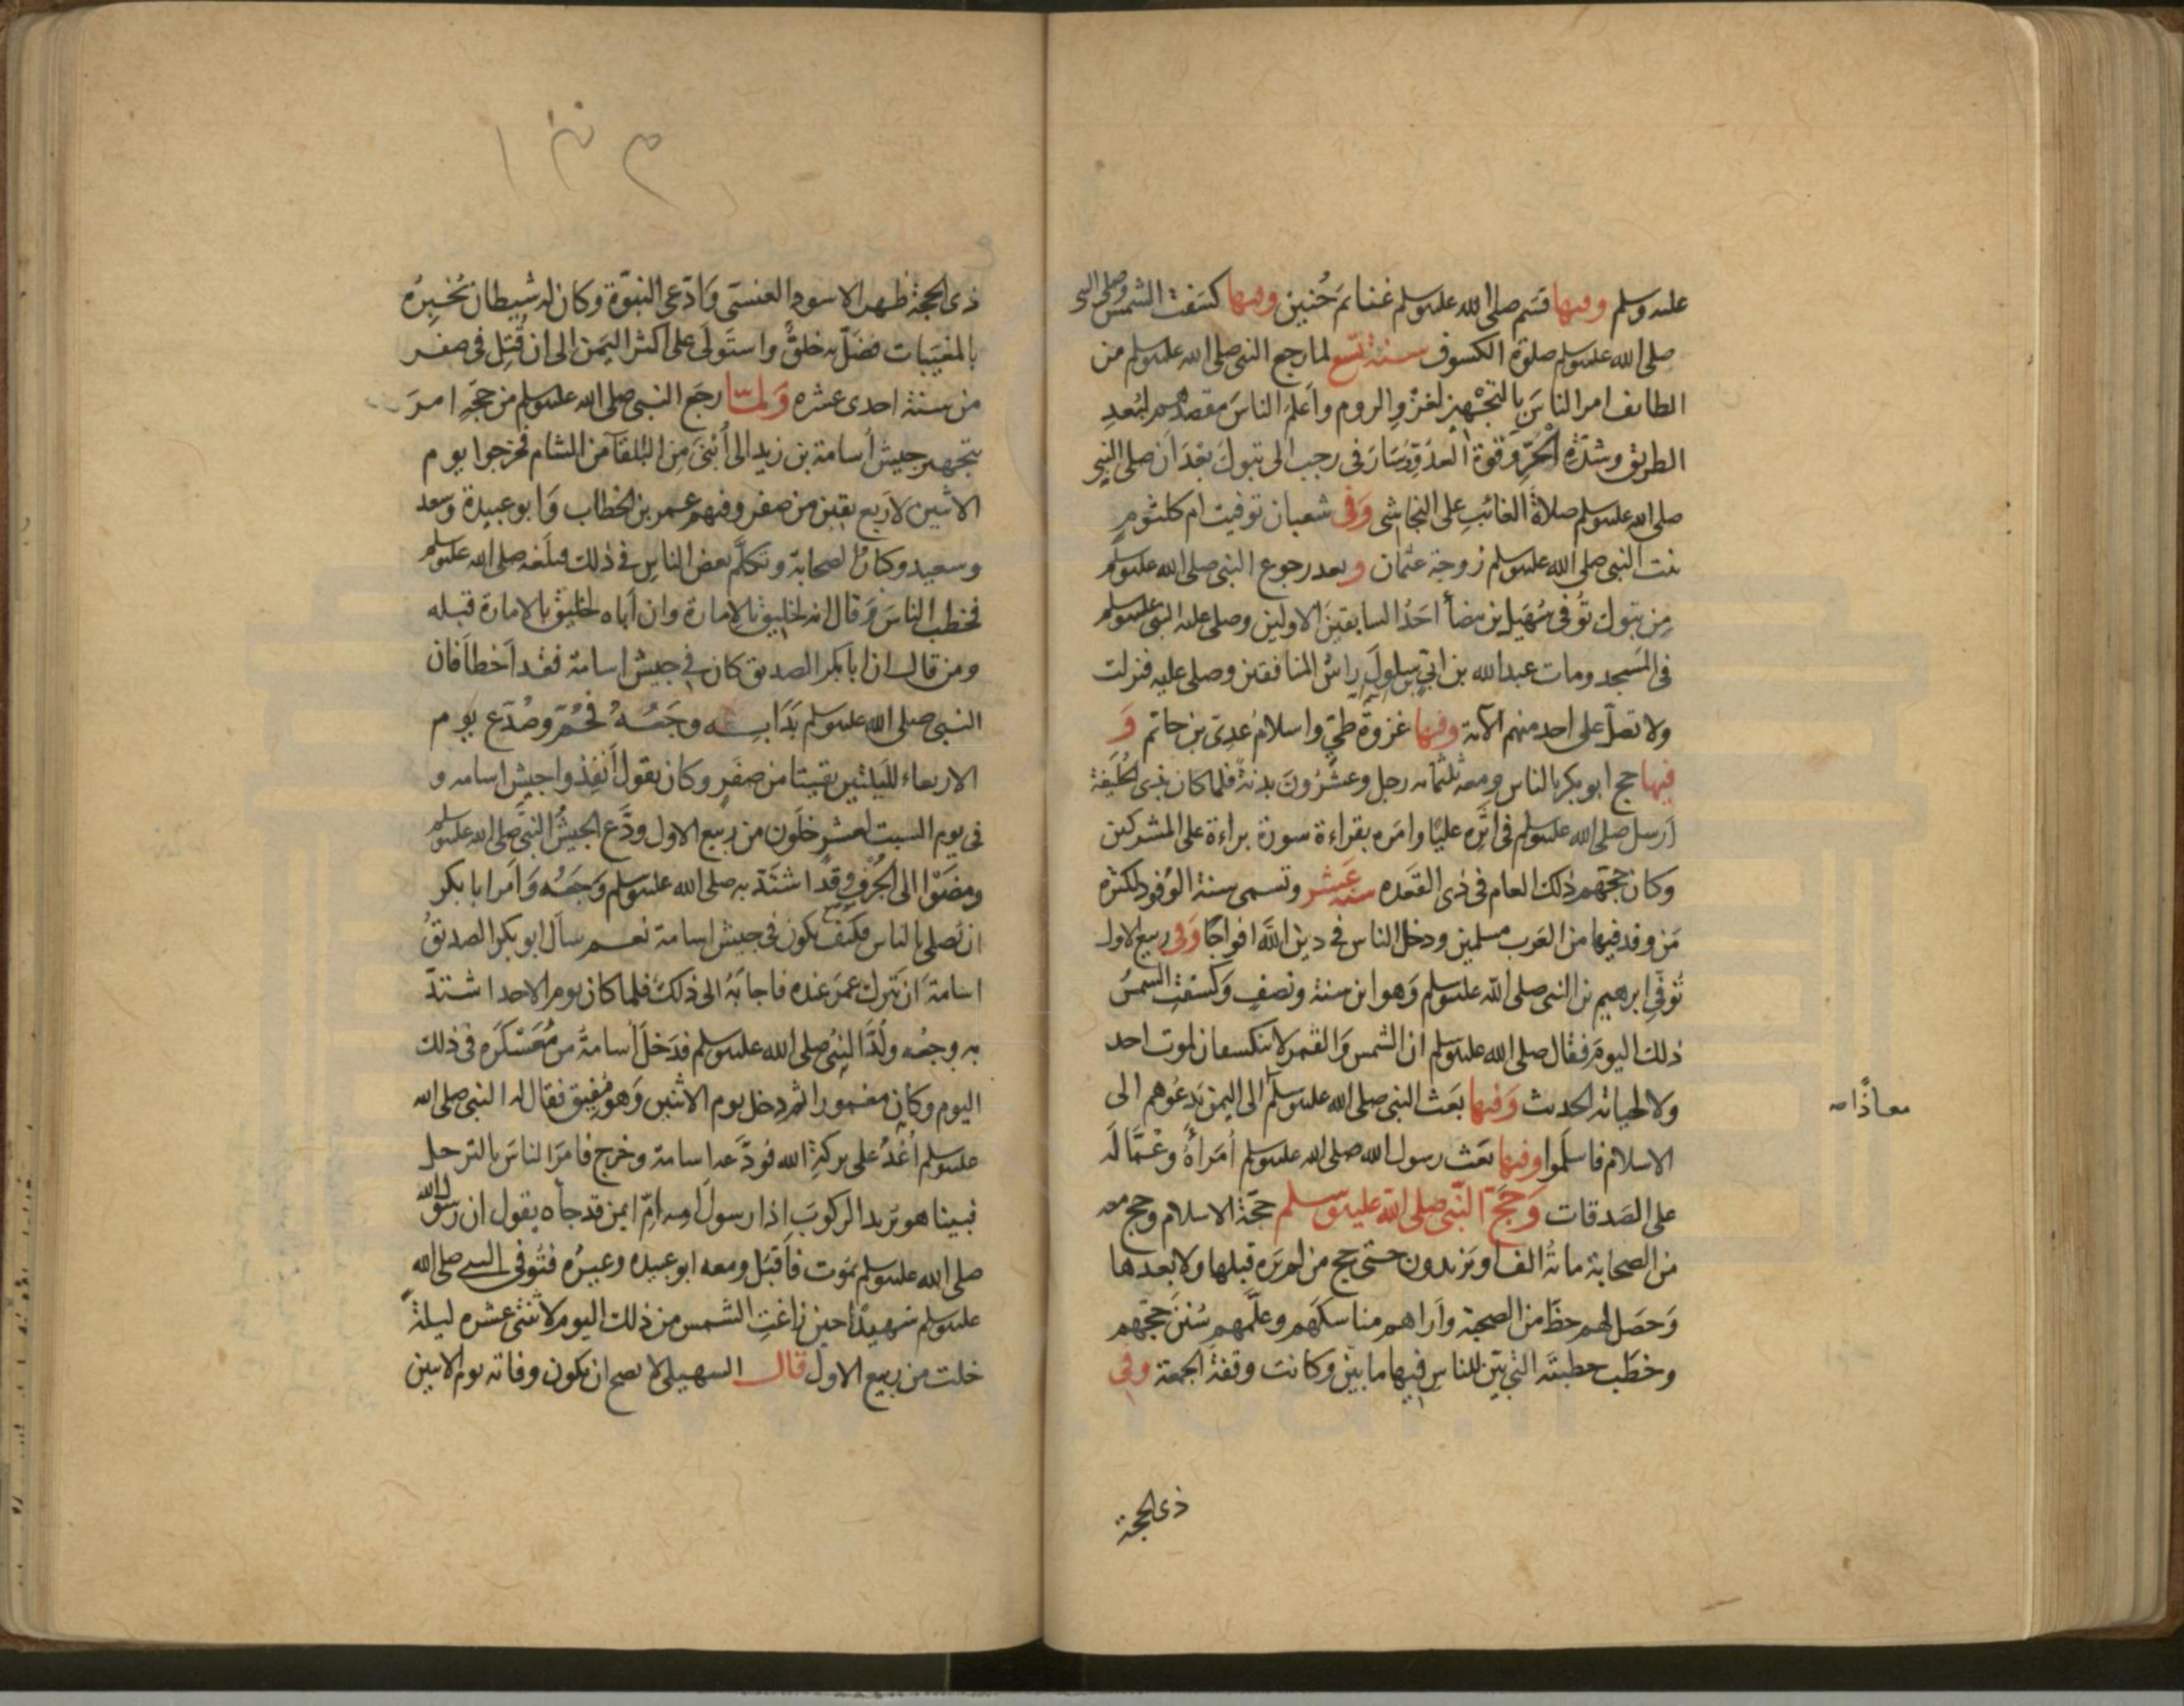 عليه وسلم وفيها قسم صلى الله عليه وسلم غنائم حُنين وفيها كسفت الشمس وصلى النبى
صلى الله عليه وسلم صلوة الكسوف سنة تسع لما رجع النبى صلى الله عليه وسلم من
الطائف امر الناسَ بالتجهيز لغزو الروم واَعلم الناسَ مقصدهم لبُعدِ
الطريق وشدّة الحَرِّ وَقوة العدُوّ وَسَارَ فى رجب الى تبوك بَعْدَ اَن صلى النبى
صلى الله عليه وسلم صلاة الغائب على النجاشى وَفى شعبان توفيت ام كلثوم
بنت النبى صلى الله عليه وسلم زوجة عثمان وبعد رجوع النبى صلى الله عليه وسلم
مِن تبوك تُوُفى سُهَيل بن بيضأ احَدُ السابقينَ الاولين وصلى عليه النبى عليه وسلم
فى المسجد ومات عبد الله بن ابى سلول راسُ المنافقين وصلى عليه فنزلت
ولا تصلّ على احد منهم الآية وفيها غزوة طيّ واسلامُ عدِىّ بن حاتم وَ
فيها حج ابو بكر بالناس ومعه ثلثمائه رجل وعشرُونَ بدنةً فلما كان بذى الحُليفة
اَرسل صلى الله عليه وسلم فى اثَرِه عليًا وامَره بقراءة سورة براءة على المشركين
وكان حجهم ذلك العام فى ذى القعده سنة عَشر وتسمى سنة الوُفود لكثرة
مَن وفد فيها من العَرب مسلمين ودخل الناس فى دين الله افواجًا وَفى ربيع الاول
تُوُفّى ابرهيم بن النبى صلى الله عليه وسلم وَهو ابن سنة ونصفٍ وَكسفت الشمسُ
ذلك اليومَ فقال صلى الله عليه وسلم ان الشمس وَالقمر لا ينكسفان لموت احد
ولا لحياته الحديث وَفيها بَعَث النبى صلى الله عليه وسلم الى اليمن يَدعُوهم الى
معاذًا صه
الاسلام فاسلَموا وفيها بَعَث رسول الله صلى الله عليه وسلم اُمَرأهُ وعُمّالَه
على الصَدقات وَحَجّ النبّى صلى الله عليه وسلم حجّة الاسلام وحج معه
من الصحابة مائةُ الف اويَزيدون حتى حج من لم يَره قبلها ولا بعدها
وَحَصَل لهم حظّ من الصحبة وأَراهم مناسكَهم وعلّمهم سُنَنَ حجّهم
وخطَب خطبتَه التى بيّن للناسِ فيها ما بيّن وكانت وقفةَ الجمعة وفى
ذى الحجة
ذى الحجة ظهر الاسود العنسى وَادّعى النبوّة وكان له شيطان يُخبِرُه
بالمغيَّبات فضَلّ به خلقٌ واستَولَى على اكثر اليمَن الى ان قُتِل فى صفر
من سنة احدى عشره وَلمّا رجَع النبى صلى الله عليه وسلم من حجّه امرَ
بتجهيز جيش اُسامة بن زيد الى اُبنَى مِن البَلقآ من الشام فخرجوا يوم
الاثنين لاَربع بقين من صفر وفيهم عمر بن الخطاب وَابو عبيدة وَسعد
وسعيد وكبار الصحابة وتكلّم بعض الناسِ فى ذلك فبلَغه صلى الله عليه وسلم
فخطب الناسَ وَقال انه لخليق بالامارة وان اَباه لخليق بالامارة قبله
ومن قال ان ابا بكر الصديق كان فى جيش اسامة فقد اَخطأ فان
النبى صلى الله عليه وسلم بَدَأ به وجَعُهُ فحُمّ وصُدّع يوم
الاربعاء لليلتين بقيتا من صفرٍ وكان يقول اَنفِذوا جيش اسامه و
فى يوم السبت لعشرٍ خلَون من ربيع الاول ودَّع الجيشُ النبّى صلى الله عليه وسلم
ومضَوْا الى الجُرف وقد اشتدّ به صلى الله عليه وسلم وَجَعُه وَاَمر ابا بكر
ان يُصلى بالناس فكيف يكون فى جيش اسامة نعم سأل ابو بكر الصديقُ
اسامةَ ان يَترك عمَرَ عنده فاجابَهُ الى ذلكَ فلما كان يوم الاحد اشتدّ
به وجعُه ولُدَّ النبىُ صلى الله عليه وسلم فدَخلَ اُسامةُ من مُعَسْكَره فى ذلك
اليوم وكان مغمورا ثم دخل يوم الاثنين وَهو مُفيق فقال له النبى صلى الله
عليه وسلم اُغْدُ على بركةِ الله فودَّعه اسامة وخرج فامَرَ الناسَ بالترحل
فبينا هو يريد الركوبَ اذا رسولُ امه امّ ايمن قد جأه يقول ان رسول الله
صلى الله عليه وسلم يموت فاَقبَل ومعه ابو عبيده وعمرُه فتُوفى النبى صلى الله
عليه وسلم شهيدًا حين زاغتِ الشمس من ذلك اليوم لاثنتى عشره ليلةً
خلت من ربيع الاول قال السهيلى لا يصح ان يكون وفاته يوم الاثنين